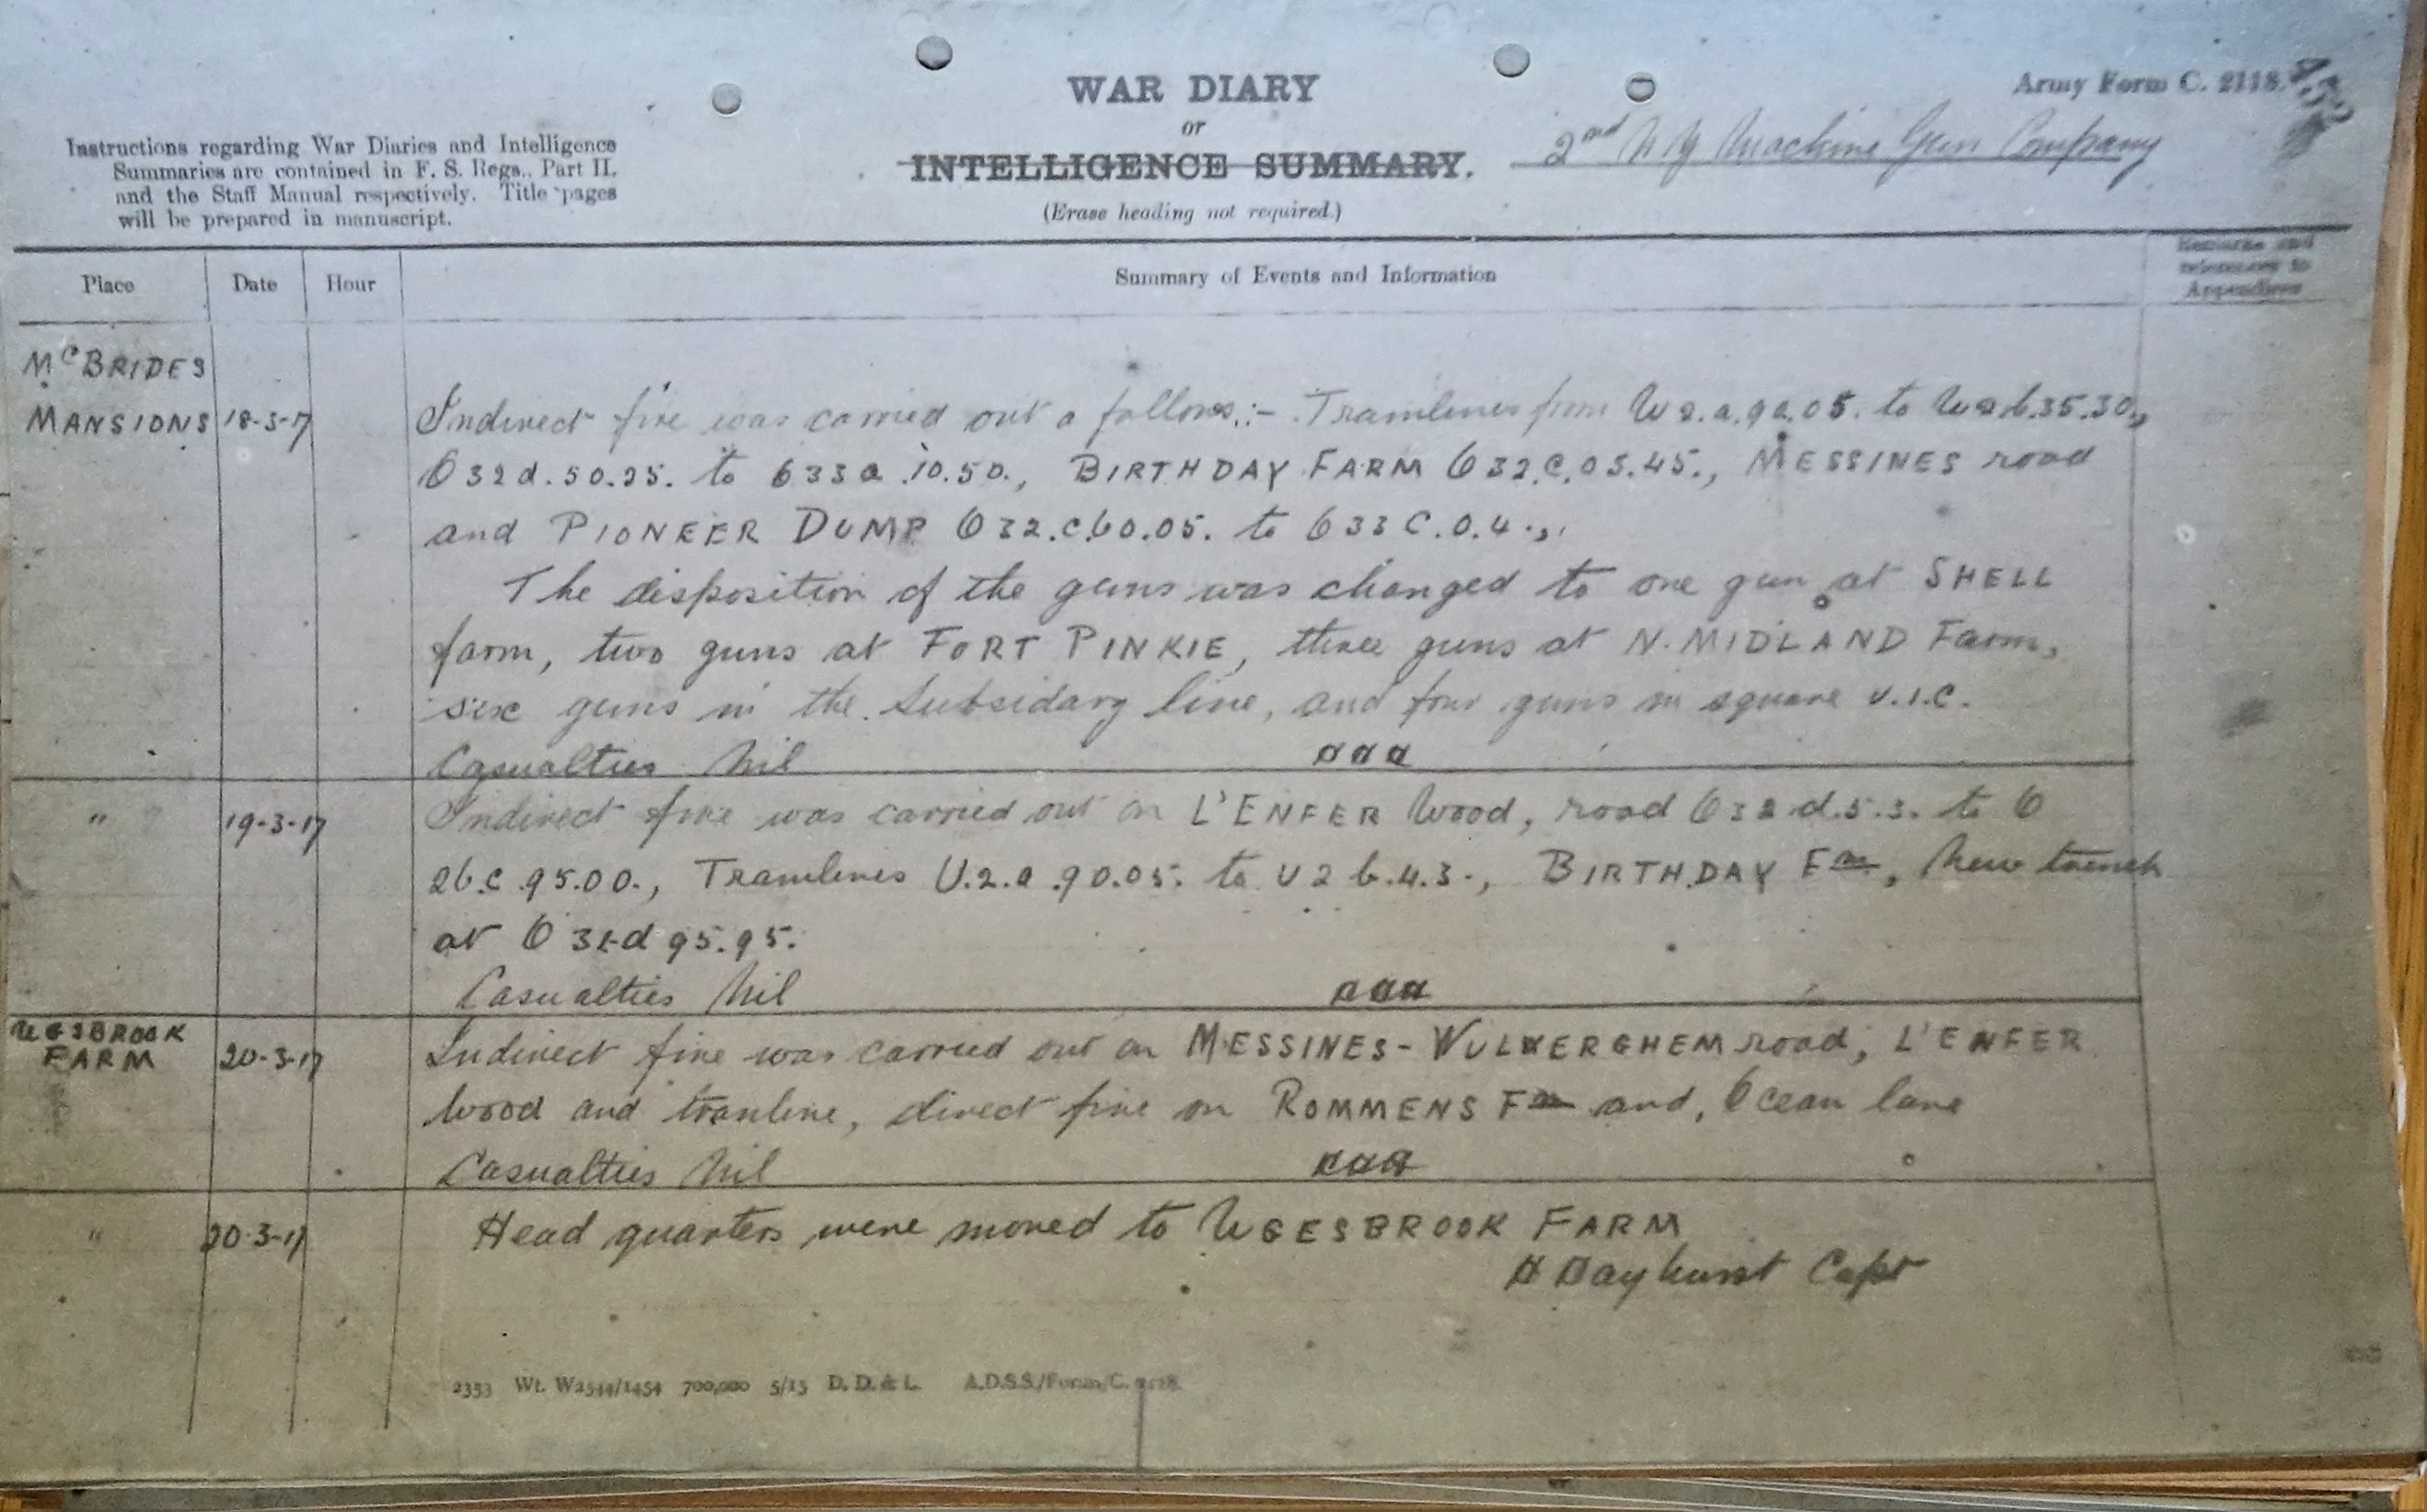 WAR DIARY
or
INTELLIGENCE SUMMARY.
(Erase heading not required.)
Army Form C. 2118.
2nd N Z Machine Gun Company
Instructions regarding War Diaries and Intelligence
Summaries are contained in F. S. Regs., Part II.
and the Staff Manual respectively. Title pages
will be prepared in manuscript.
Place
Date
Hour
Summary of Events and Information
Remarks and
references to
Appendices
McBRIDES
MANSIONS 18-3-17
Indirect fire was carried out a follows:- Tramlines from U2.a.90.05. to U2b.35.30.,
O32d.50.25. to O33a.10.50., BIRTHDAY FARM O32.C.05.45., MESSINES road
and PIONEER DUMP O32.C.60.05. to O33C.0.4.,
The disposition of the guns was changed to one gun at SHELL
farm, two guns at FORT PINKIE, three guns at N. MIDLAND Farm,
six guns in the Subsidary line, and four guns in square U.1.C.
Casualties Nil
" 19-3-17
Indirect fire was carried out on L'ENFER Wood, road O32d.5.3. to O
26.c.95.00., Tramlines U.2.a.90.05. to U2b.4.3., BIRTHDAY Fm, New trench
at O d 95.95.
Casualties Nil
UGSBROOK
FARM 20-3-17
Indirect fire was carried out on MESSINES-WULVERGHEM road, L'ENFER
wood and tramline, direct fire on ROMMENS Fm and, Ocean lane
Casualties Nil
" 20-3-17
Head quarters were moved to UGESBROOK FARM
Capt
2353 Wt. W2544/1454 700,000 5/15 D. D. & L. A.D.S.S./Forms/C. 2118.